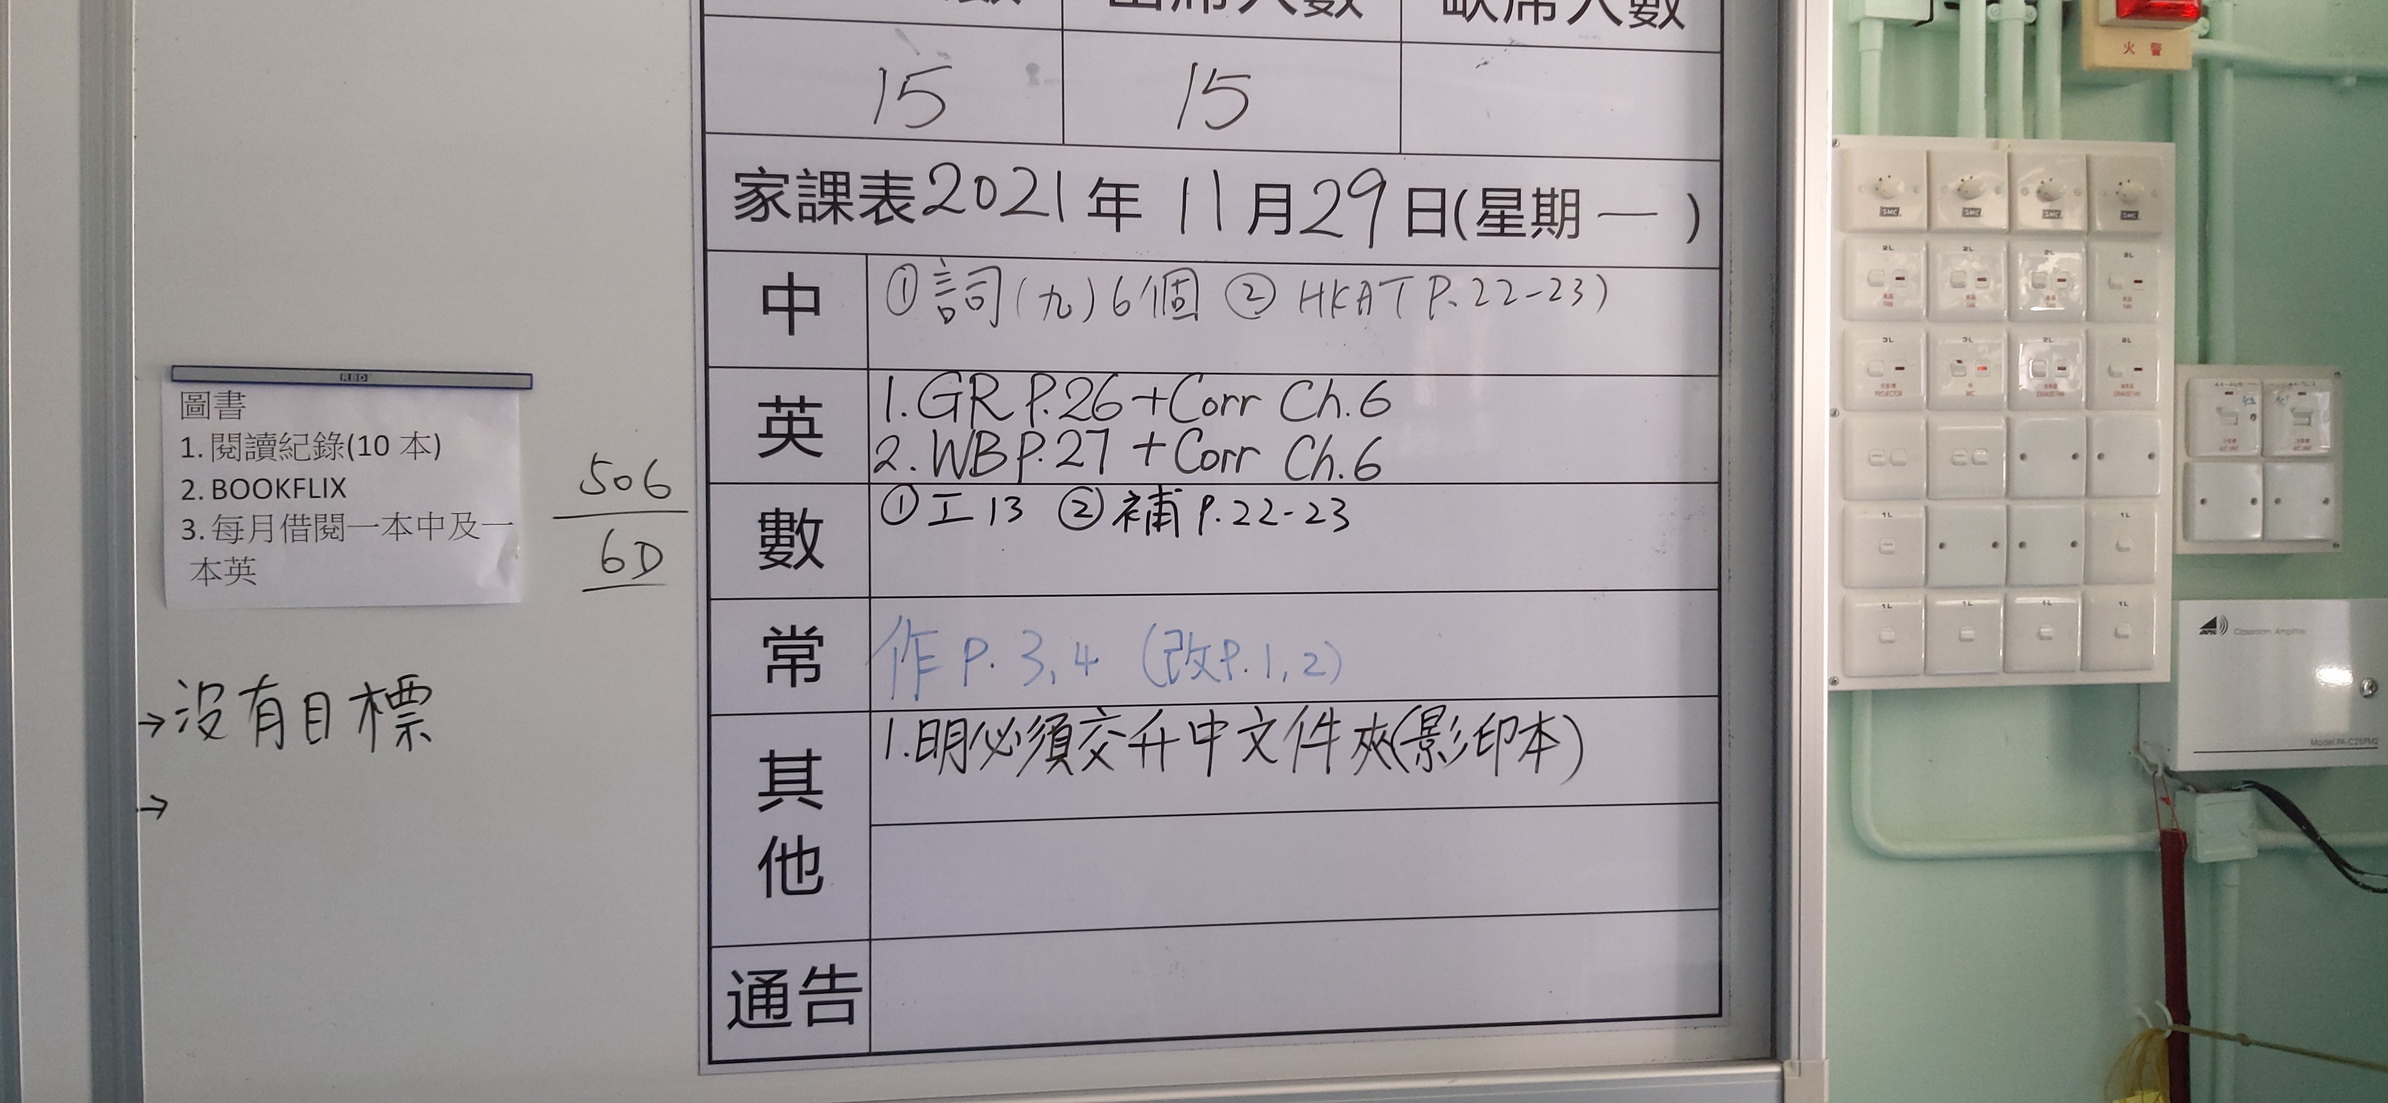 出席人數 缺席人數
15 15
家課表2021年 11月29日(星期一)
中 ①詞(九)6個 ② HKAT P.22-23)
英 1.GR P.26+Corr Ch.6
2.WB P.27 +Corr Ch.6
數 ①工13 ②補 P.22-23
常 作 P. 3,4 (改P.1,2)
其他 1.明必須交升中文件夾(影印本)
通告
RBD
圖書
1. 閱讀紀錄(10 本)
2. BOOKFLIX
3. 每月借閱一本中及一
本英
506
6D
→沒有目標
→
火警
SMC SMC SMC SMC
2L 2L 2L 2L
3L 3L 2L 2L
PROJECTOR
1L 1L
1L 1L 1L 1L
Classroom Amplifier
Model PA-C25PM2